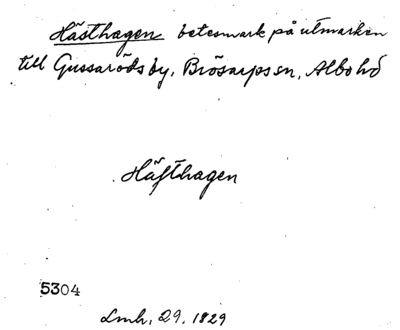 Hästhagen betesmark på utmarken
till Gussarödsby, Brösarps sn, Albo hd
Häſthagen
5304
Lmh, 29. 1829